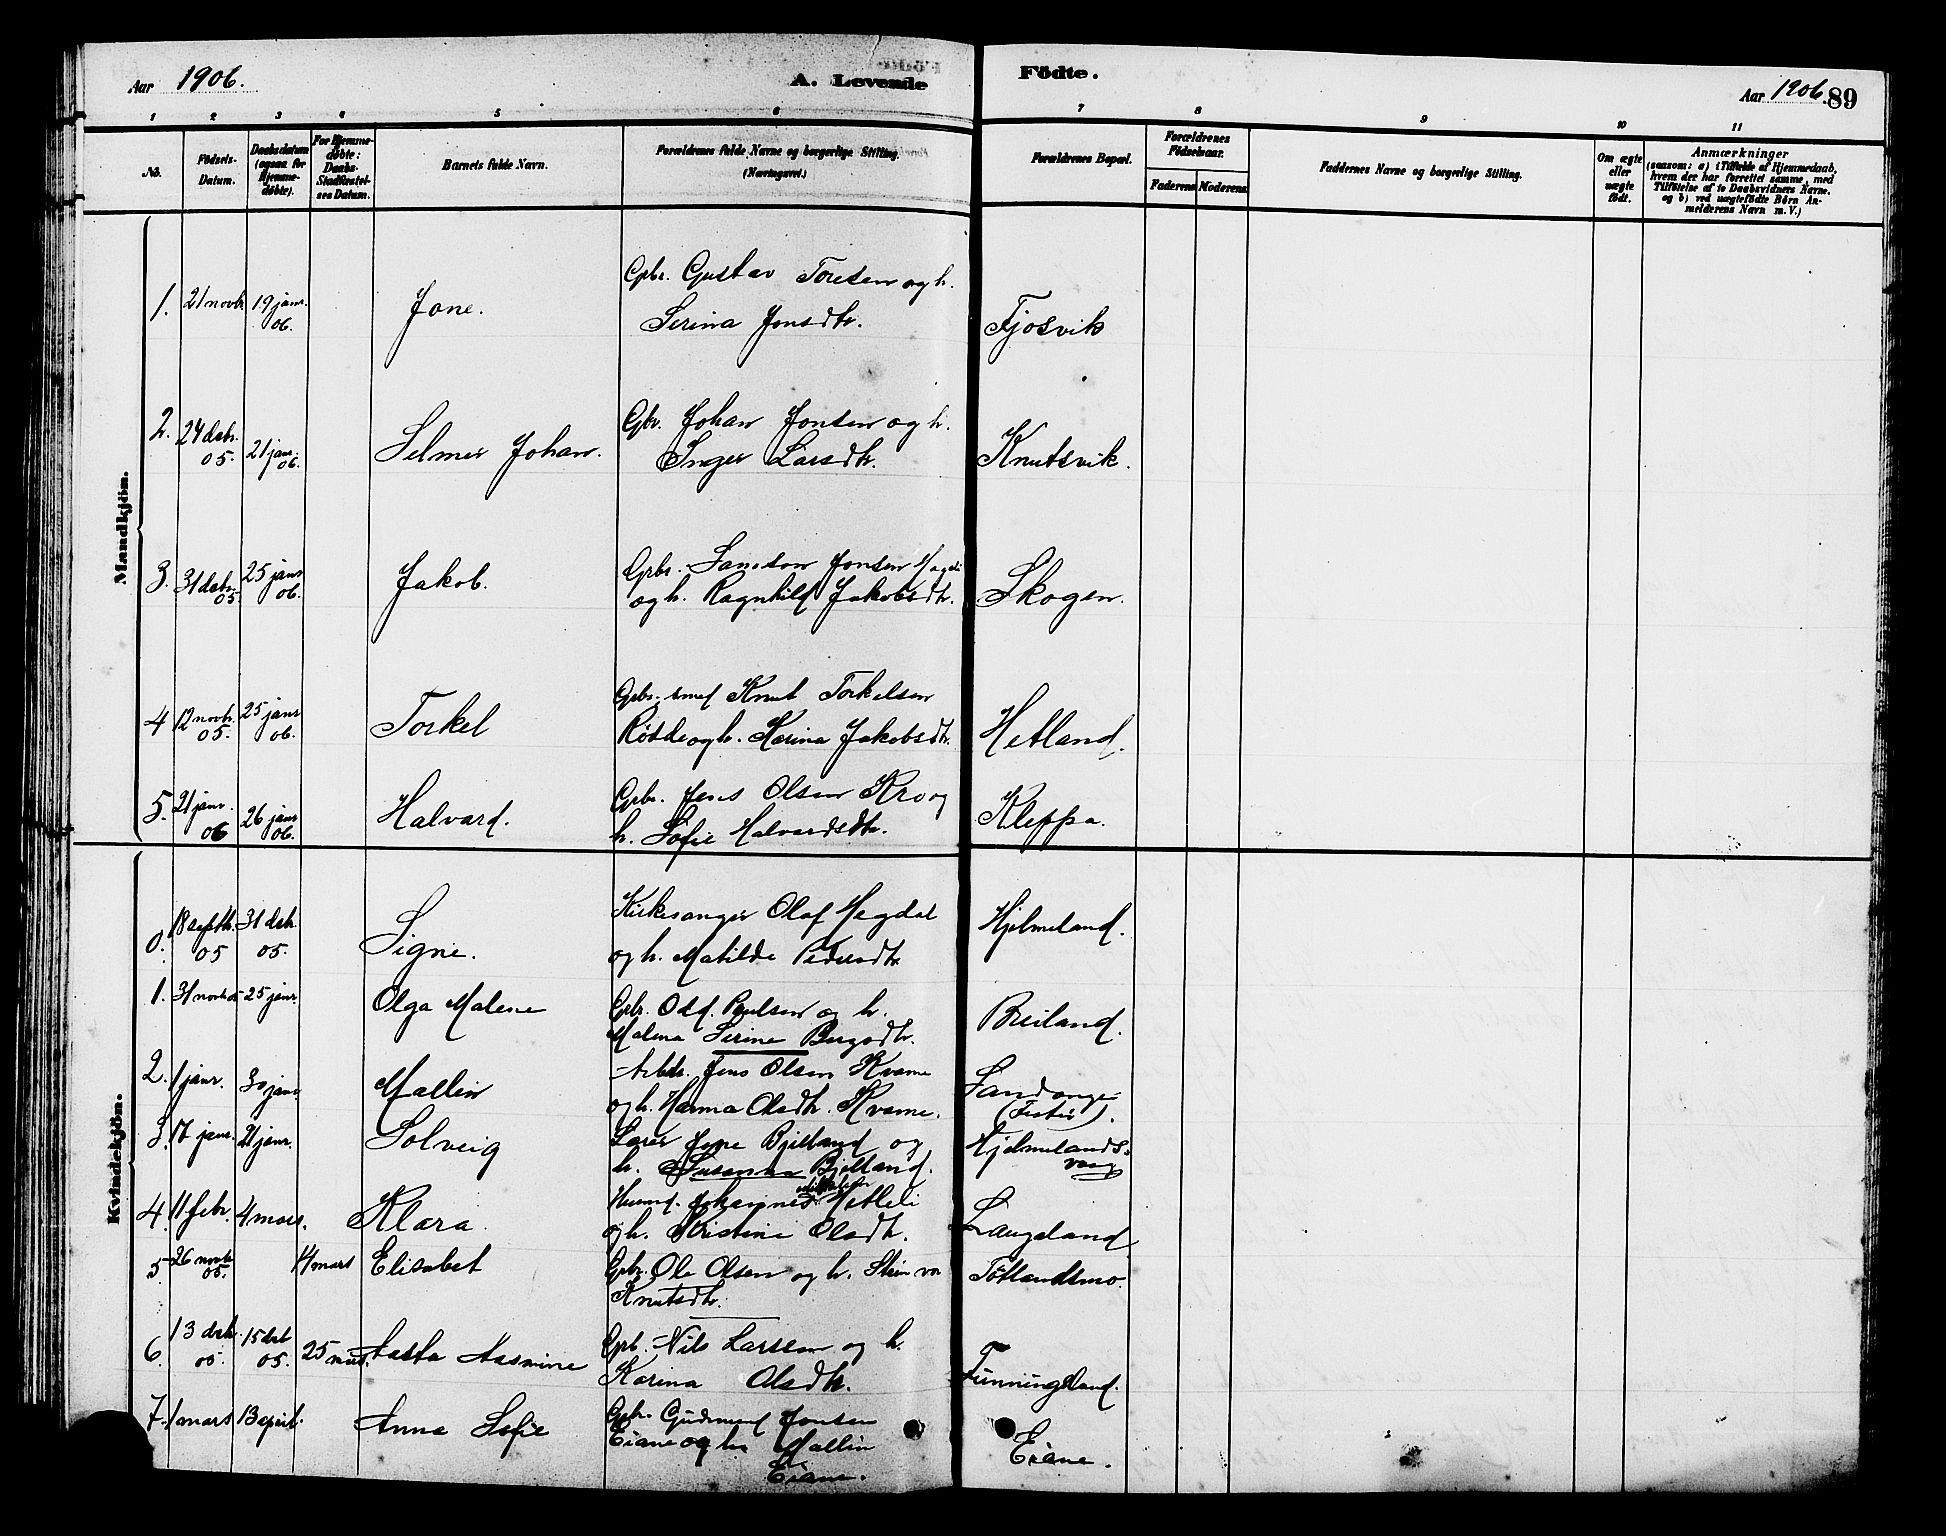 Aar 1906.
A. Levende
Födte.
Aar 1906. 89
1 2 3 4 5 6 7 8 9 10 11
No.
Födsels-
Datum.
Daabsdatum
(ogsaa for
Hjemme-
döbte).
For Hjemme-
döbte:
Daabs-
Stadfæstel-
ses Datum.
Barnets fulde Navn.
Forældrenes fulde Navne og borgerlige Stilling.
(Næringsvei.)
Forældrenes Bopæl.
Forældrenes
Födselsaar.
Faderens Moderens
Faddernes Navne og borgerlige Stilling.
Om ægte
eller
uægte
födt.
Anmærkninger
(saasom: a) i Tilfælde af Hjemmedaab,
hvem der har forrettet samme, med
Tilföielse af to Daabsvidners Navne,
og b) ved uægtefödte Börn An-
melderens Navn m. V.)
Mandkjön.
1. 21 novbr 19 janr. 06. Jone. Gbr. Gustav Toresen og h.
Serina Jonsdtr. Fjosvik
2. 24 dcbr. 05. 21 janr. 06. Selmer Johan. Gbr. Johan Jonsen og h.
Inger Larsdtr. Knutsvik.
3. 31 dcbr. 05. 25 janr 06. Jakob. Gbr. Samson Jonsen
og h. Ragnhild Jakobsdtr. Skogen.
4 12 novbr. 05. 25 janr 06. Torkel Gbr. smed Knut Torkelsen
og h. Karina Jakobsdtr. Hetland.
5. 21 janr. 06 26 janr 06. Halvard. Gbr. Jens Olsen Kro og
h. Sofie Halvardsdtr. Kleppa.
Kvindekjön.
0. 18 septb. 05 31 dcbr. 05. Signe. Kirkesanger Olaf Megdal
og h. Matilde Pedersdtr Hjelmeland.
1. 31 novbr 05 25 janr. Olga Malene Gbr. Odd. Paulsen og h.
Malena Serine Bergsdtr. Breiland.
2. 1 janr. 30 janr. Mallin Arbdr. Jens Olsen Kvame
og h. Hanna Olsdtr. Kvame. Sandanger
(Fister).
3. 17 janr. 21 janr. Solveig Lærer Jone Bjelland og
h. Susanna Bjelland. Hjelmelands-
vaag
4. 11 febr. 4 mars. Klara. Husmd. Johannes Hetleli
og h. Kristine Olsdtr. Laugeland
5. 26 novbr 05. 14 mars Elisabet Gbr. Ole Olsen og h.
Knutsdtr. Tøtlandsmo.
6. 13 dcbr. 05. 15 dcbr 05. 25 mars. Aasta Aasmine Gbr. Nils Larssen og h.
Karina Olsdtr. Funningsland.
7. 1 mars 13 april. Anna Sofie Gbr. Gudmund Jonsen
Eiane og h. Mallin
Eiane. Eiane.